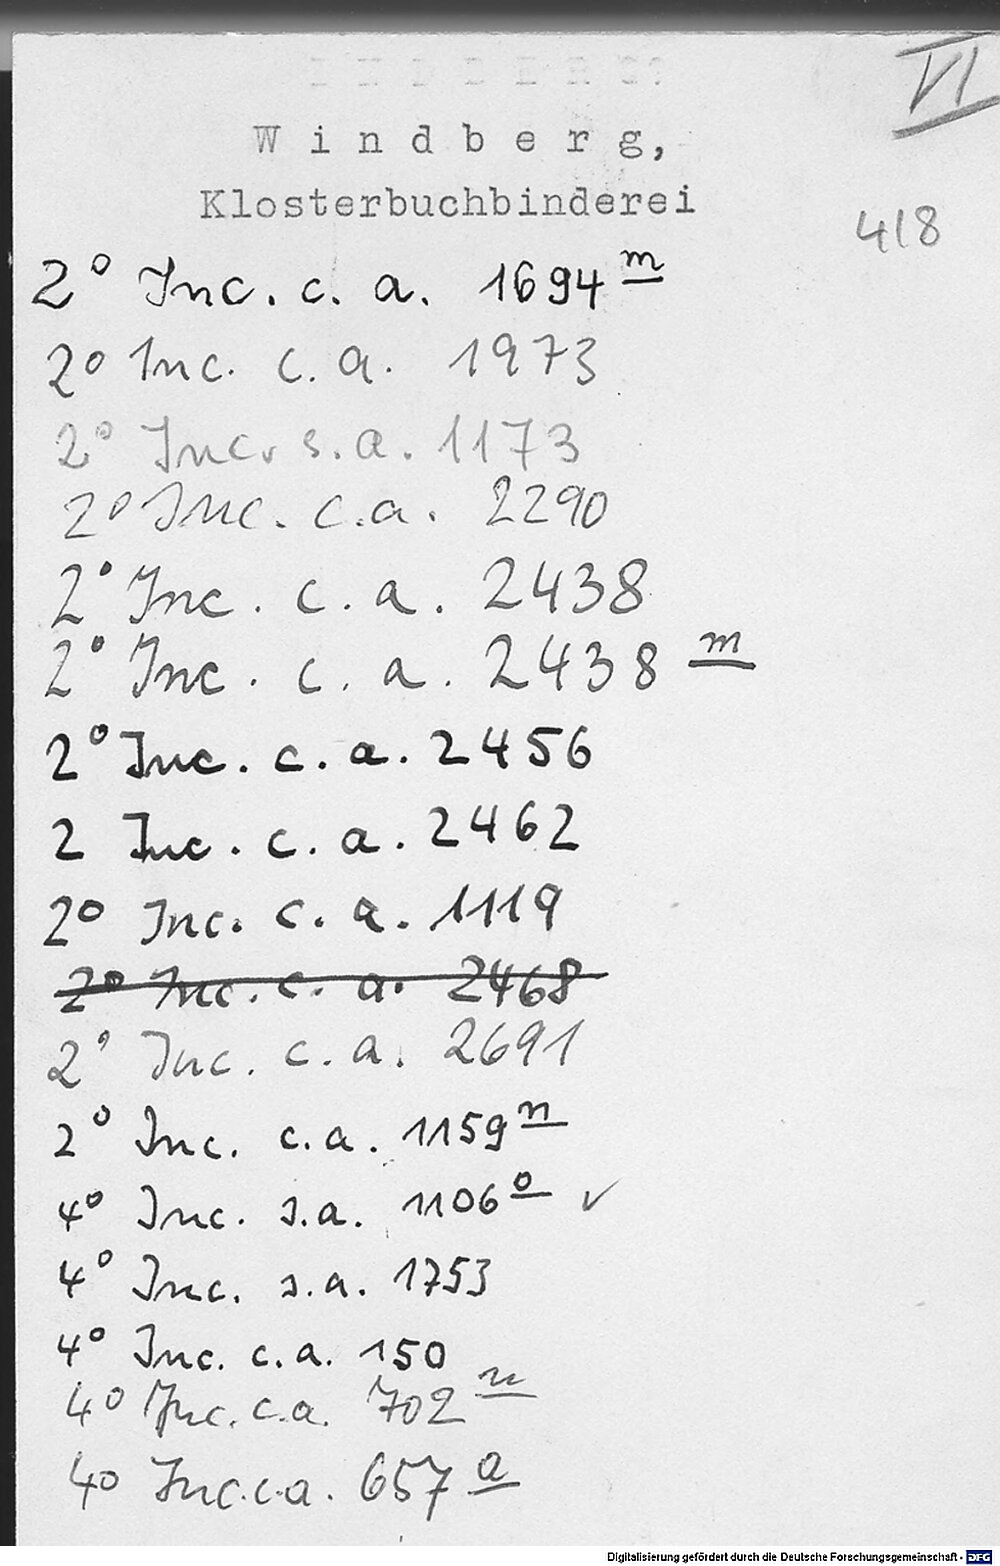 VI
W i n d b e r g,
Klosterbuchbinderei
418
2° Inc. c. a. 1694 m
2° Inc. c. a. 1973
2° Inc. s. a. 1173
2° Inc. c. a. 2290
2° Inc. c. a. 2438
2° Inc. c. a. 2438 m
2° Inc. c. a. 2456
2 Inc. c. a. 2462
2° Inc. c. a. 1119
2° Inc. c. a. 2468
2° Inc. c. a. 2691
2° Inc. c. a. 1159 n
4° Inc. s. a. 1106 o ✓
4° Inc. s. a. 1753
4° Inc. c. a. 150
4° Inc. c. a. 702 n
4° Inc. c. a. 657 a
Digitalisierung gefördert durch die Deutsche Forschungsgemeinschaft - DFG